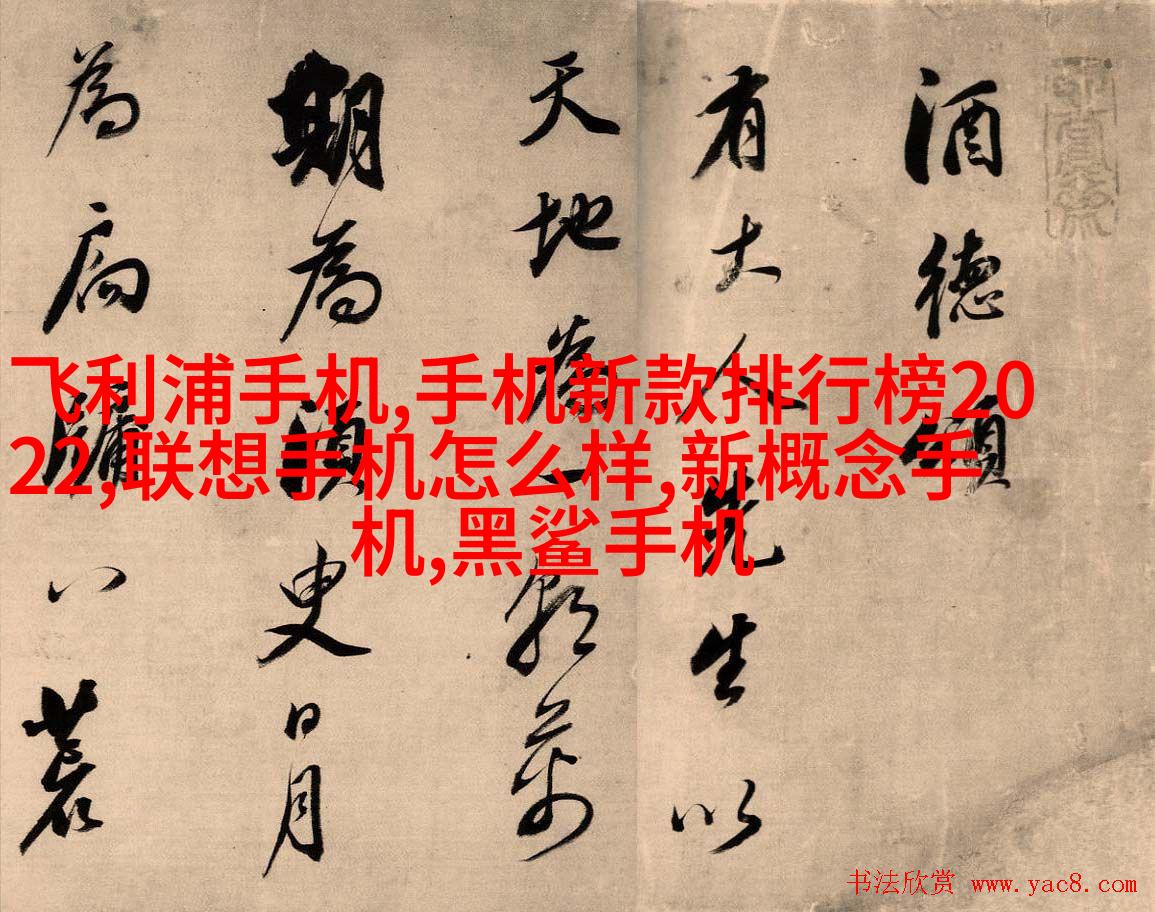 酒德頌
有大人先生以
天地為一朝萬
期為須臾日月
為扃牖八荒
飞利浦手机,手机新款排行榜20
22,联想手机怎么样,新概念手
机,黑鲨手机
书法欣赏 www.yac8.com